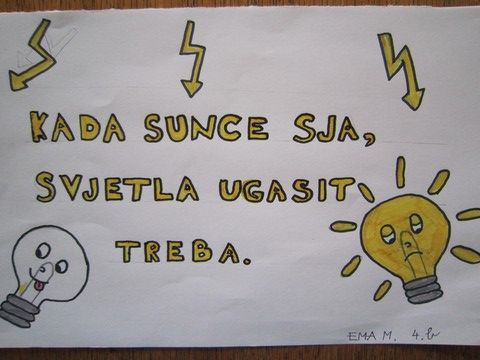 KADA SUNCE SJA,
SVJETLA UGASIT
TREBA.
EMA M. 4.b